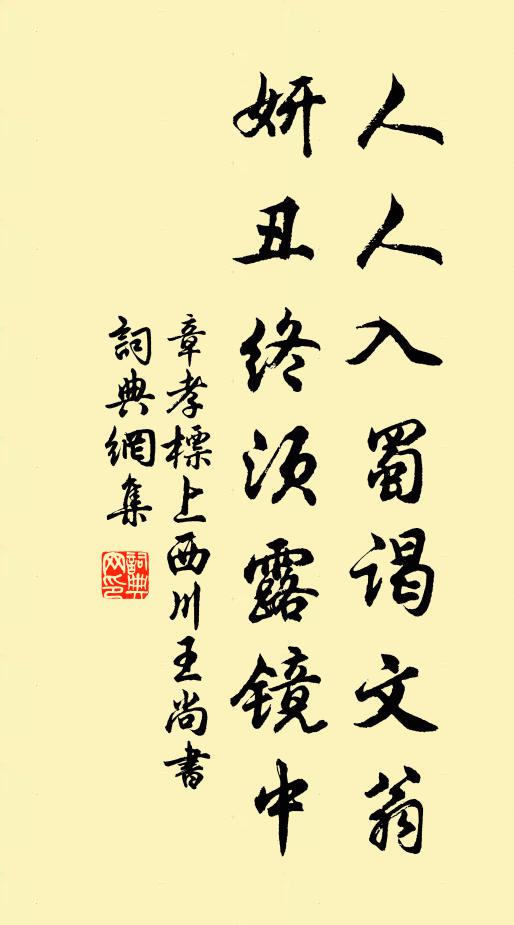 人人入蜀谒文翁
妍丑终须露镜中
章孝標上西川王尚書
詞典網集
詞典网印